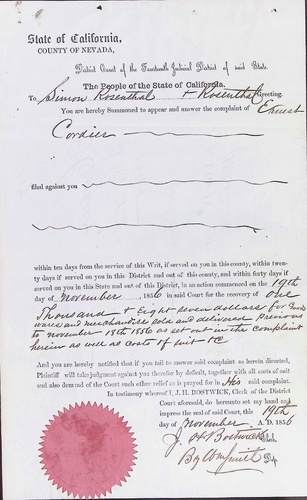 State of California,
COUNTY OF NEVADA,
District Court of the Fourteenth Judicial District of said State.
The People of the State of California.
To Simon Rosenthal & Rosenthal Greeting.
You are hereby Summoned to appear and answer the complaint of Ernest
Cordier
filed against you
within ten days from the service of this Writ, if served on you in this county, within twen-
ty days if served on you in this District and out of this county, and within forty days if
served on you in this State and out of this District, in an action commenced on the 19th
day of November, 1856 in said Court for the recovery of One
Thousand & Eight seven dollars for Goods
wares and merchandise sold and delivered previous
to November 18th 1856 as set out in the complaint
herein as well as costs of suit &c
And you are hereby notified that if you fail to answer said complaint as herein directed,
Plaintiff will take judgment against you therefor by default, together with all costs of suit
and also demand of the Court such other relief as is prayed for in His said complaint.
In testimony whereof I, J. H. BOSTWICK, Clerk of the District
Court aforesaid, do hereunto set my hand and
impress the seal of said Court, this 19th
day of November A. D. 1856
J. H. Bostwick Clerk,
By Dep